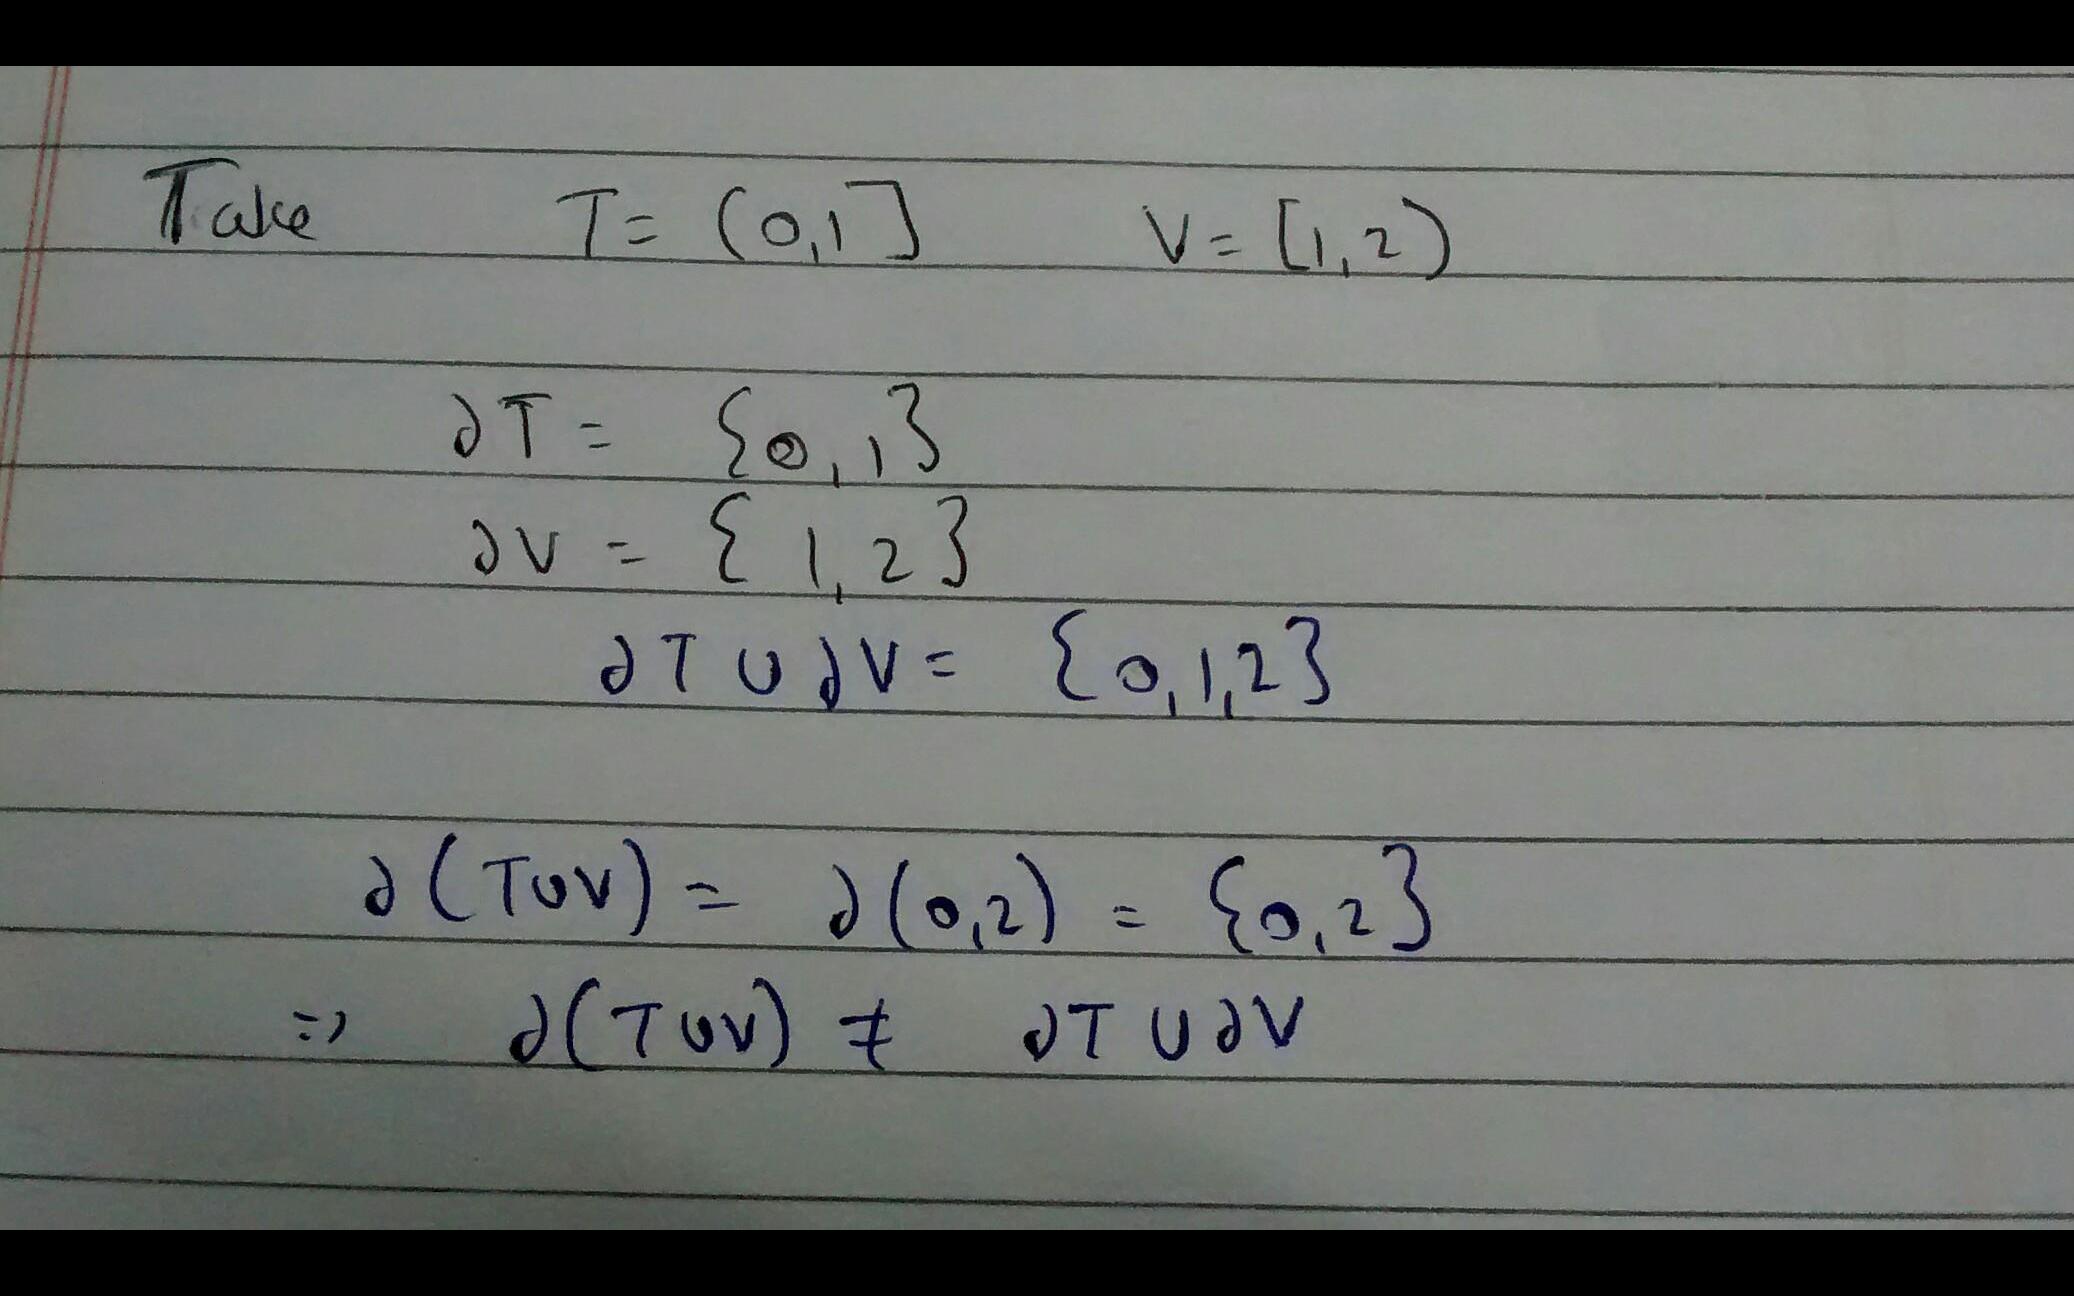 Take T = (0,1] V = [1,2)
∂T = {0,1}
∂V = {1,2}
∂T ∪ ∂V = {0,1,2}
∂(T∪V) = ∂(0,2) = {0,2}
⇒ ∂(T∪V) ≠ ∂T ∪ ∂V